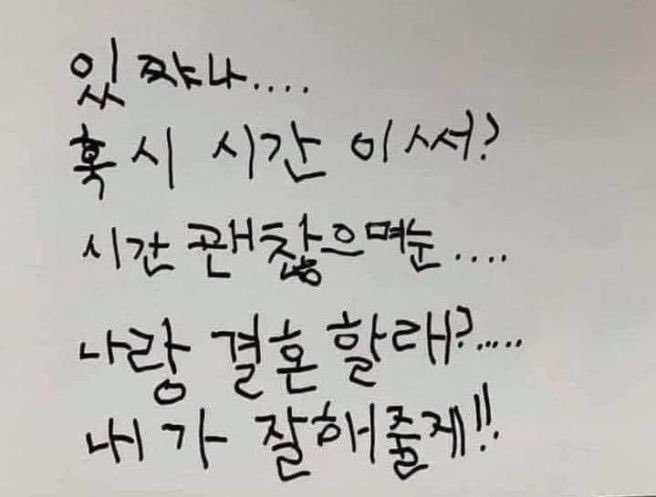 있쨔나....
혹시 시간 이써?
시간 괜찮으며눈....
나랑 결혼할래?.....
내가 잘해줄게!!